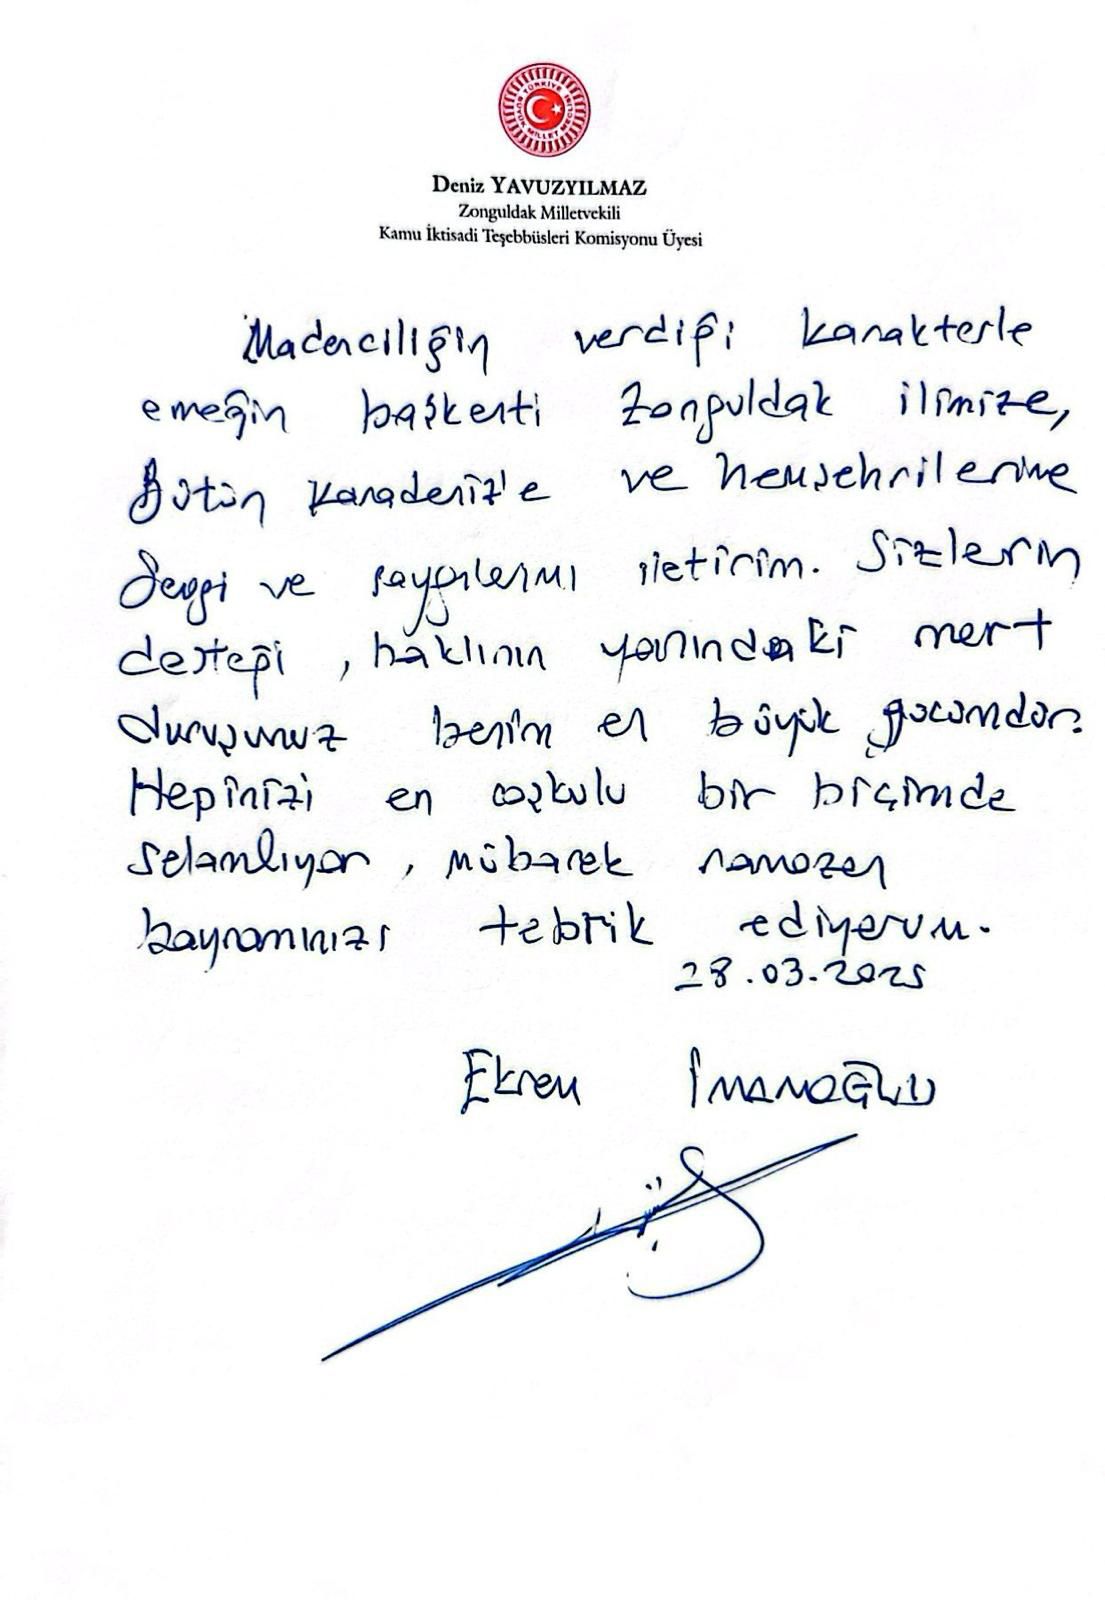 TÜRKİYE BÜYÜK MİLLET MECLİSİ
Deniz YAVUZYILMAZ
Zonguldak Milletvekili
Kamu İktisadi Teşebbüsleri Komisyonu Üyesi
Madenciliğin verdiği karakterle
emeğin başkenti Zonguldak ilimize,
Bütün Karadeniz'e ve hemşehrilerime
Sevgi ve saygılarımı iletirim. Sizlerin
desteği, haklının yanındaki mert
duruşunuz benim en büyük gücümdür.
Hepinizi en coşkulu bir biçimde
selamlıyor, mübarek ramazan
bayramınızı tebrik ediyorum.
28.03.2025
Ekrem İMAMOĞLU